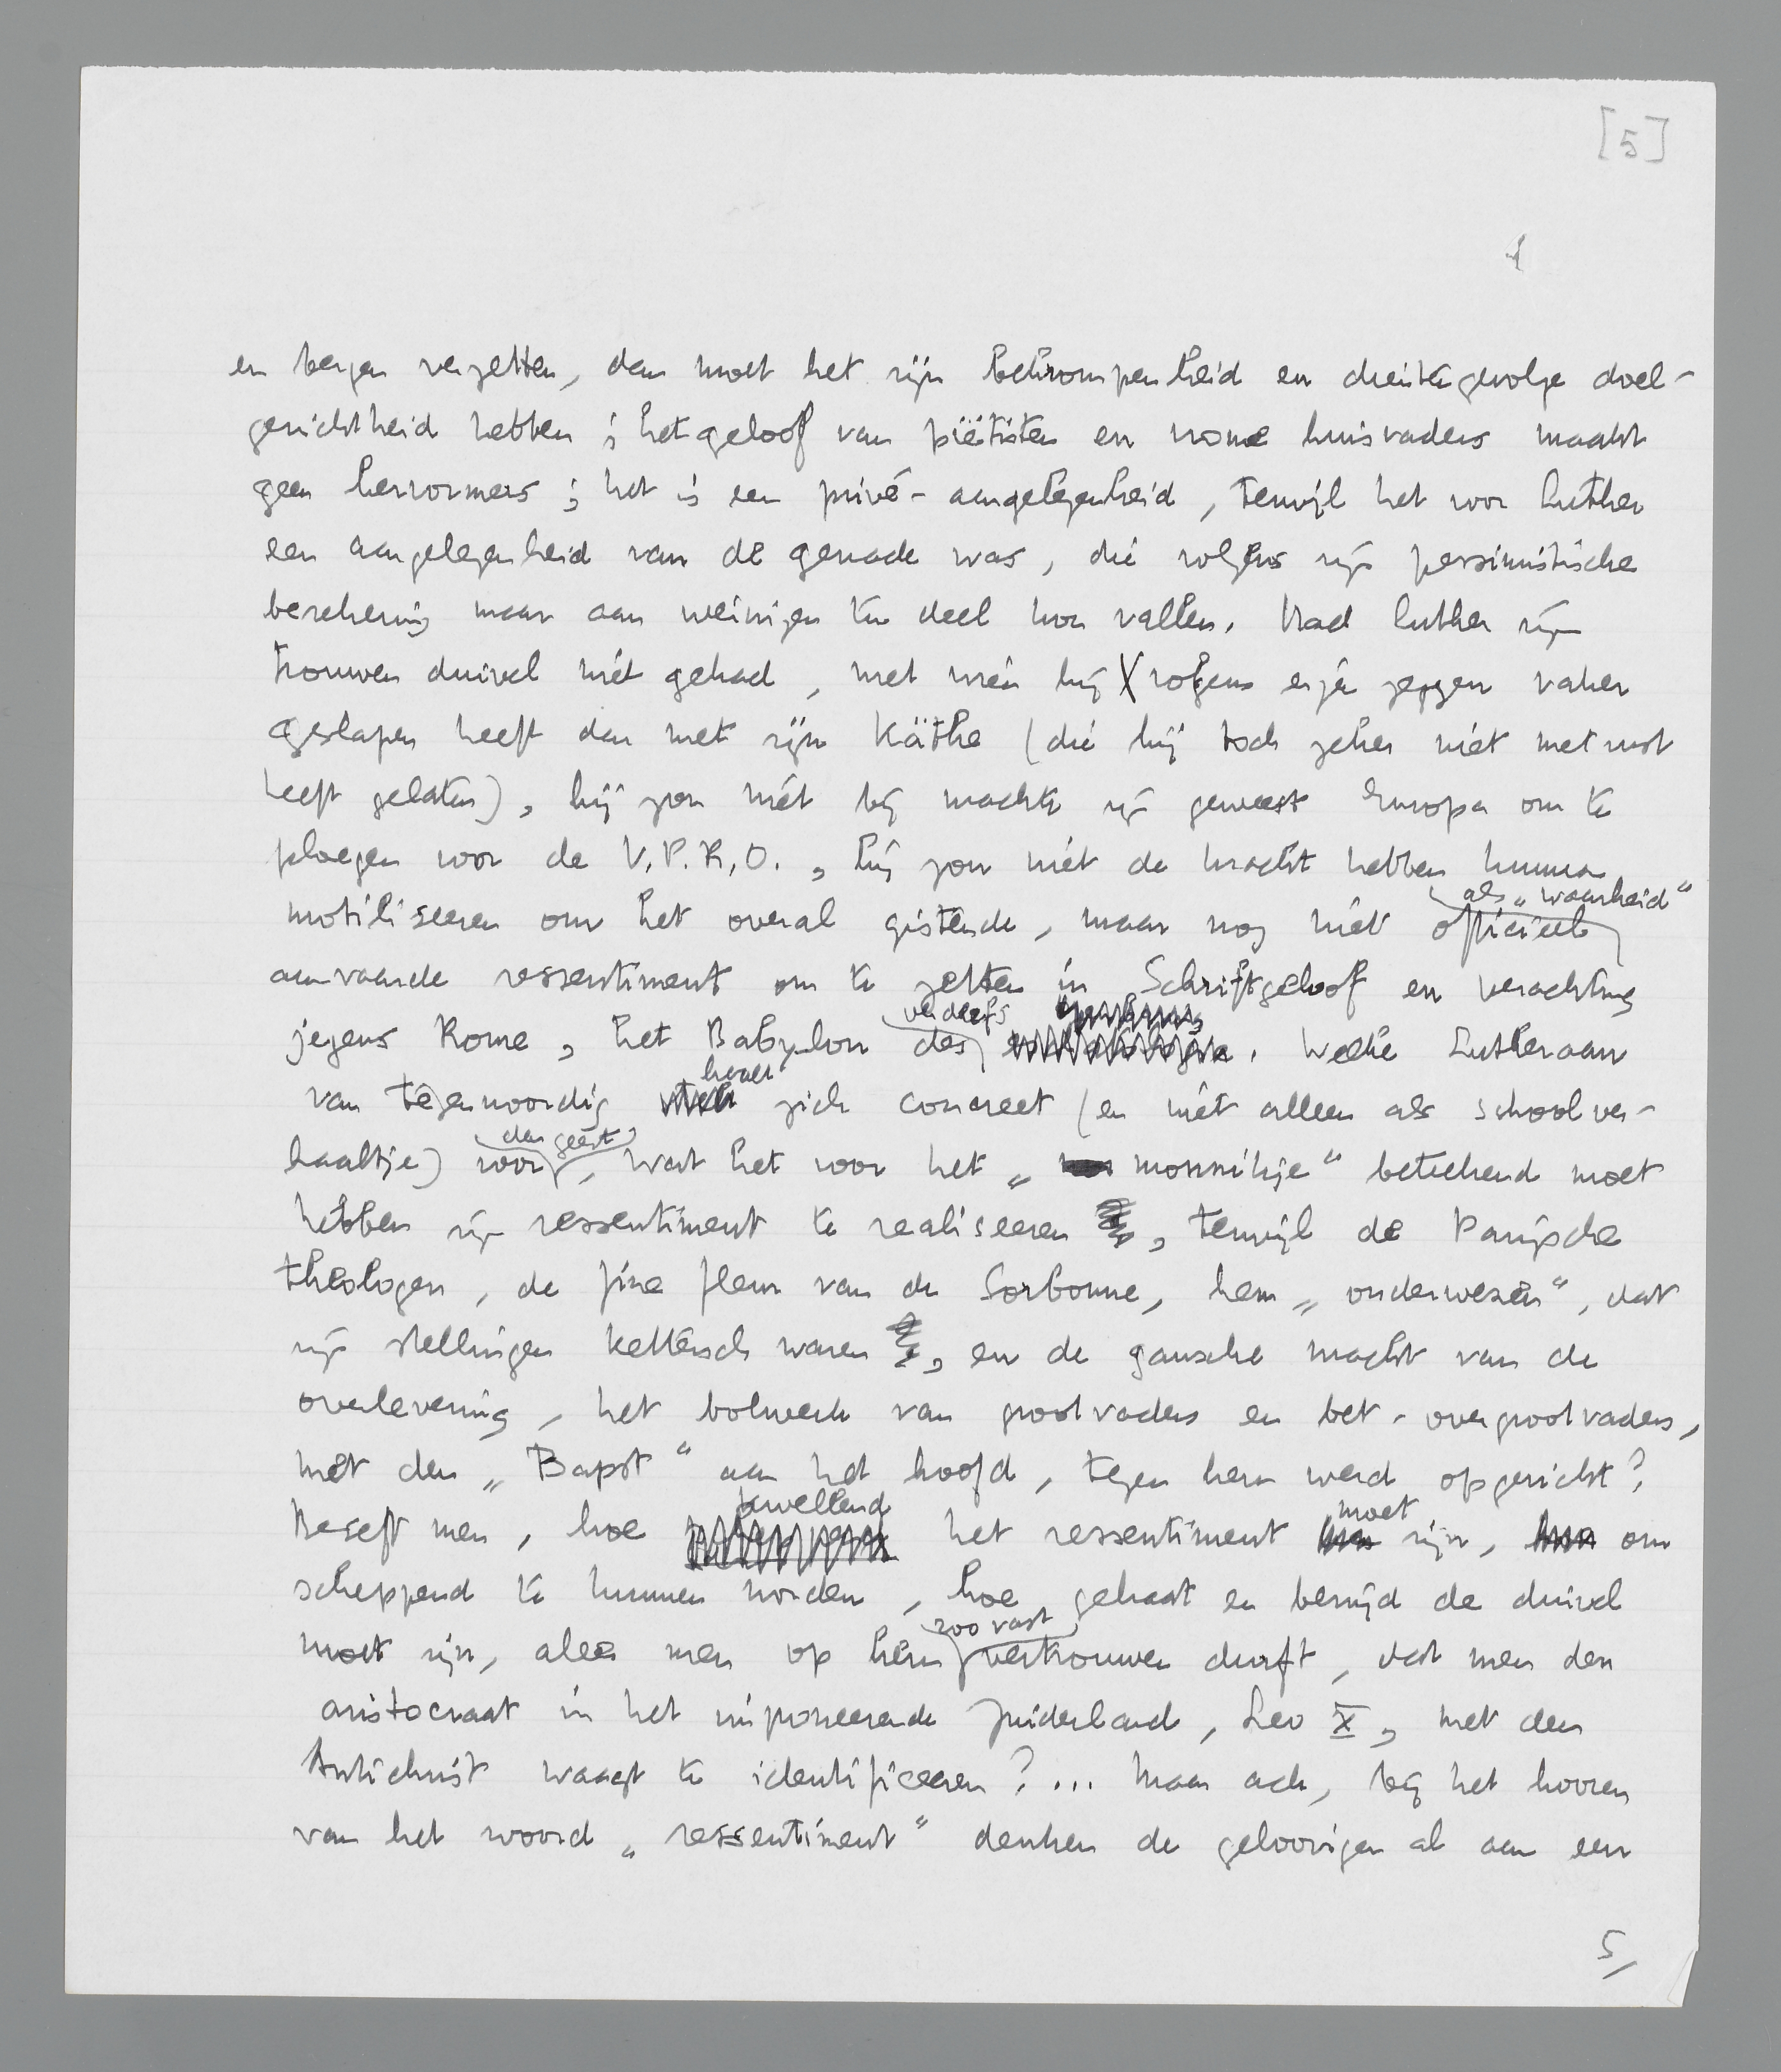 [5]
en bergen verzetten, dan moet het zijn bekrompenheid en dientengevolge doel-
gerichtheid hebben; het geloof van piëtisten en vrome huisvaders maakt
geen hervormers; het is een privé-aangelegenheid, terwijl het voor Luther
een aangelegenheid van de genade was, die volgens zijn pessimistische
berekening maar aan weinigen ten deel kon vallen. Had Luther zijn
trouwen duivel niet gehad, met wien hij volgens eigen zeggen vaker
geslapen heeft dan met zijn Käthe (die hij toch zeker niet met rust
heeft gelaten), hij zou niet bij machte zijn geweest Europa om te
ploegen voor de V.P.R.O., hij zou niet de kracht hebben kunnen
mobiliseeren om het overal gistende, maar nog niet officieel als „waarheid“
aanvaarde ressentiment om te zetten in Schriftgeloof en verachting
jegens Rome, het Babylon des verderfs. Welke Lutheraan
van tegenwoordig stelt zich concreet (en niet alleen als schoolver-
haaltje) voor den geest, wat het voor het „monnikje“ beteekend moet
hebben zijn ressentiment te realiseeren, terwijl de Parijsche
theologen, de fine fleur van de Sorbonne, hem „onderwezen“, dat
zijn stellingen kettersch waren, en de gansche macht van de
overlevering, het bolwerk van grootvaders en bet-overgrootvaders,
met den „Bapst“ aan het hoofd, tegen hem werd opgericht?
Beseft men, hoe kwellend het ressentiment moet zijn, om
scheppend te kunnen worden, hoe gehaat en benijd de duivel
moet zijn, aleer men op hem zoo vast vertrouwen durft, dat men den
aristocraat in het imponeerende Zuiderland, Leo X, met den
Antichrist waagt te identificeeren?... Maar ach, bij het hooren
van het woord „ressentiment“ denken de geloovigen al aan een
5/